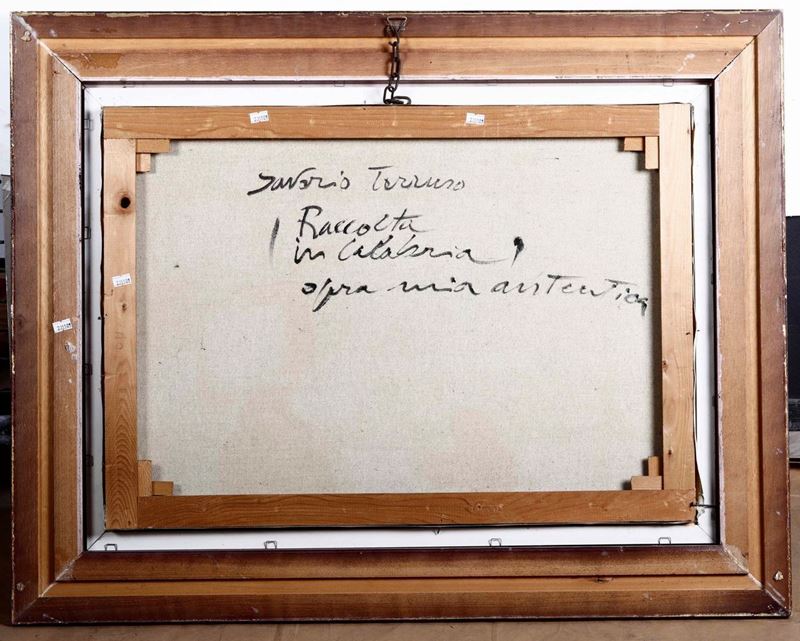 Saverio Terruso
Raccolta
in Calabria
opra mia autentica